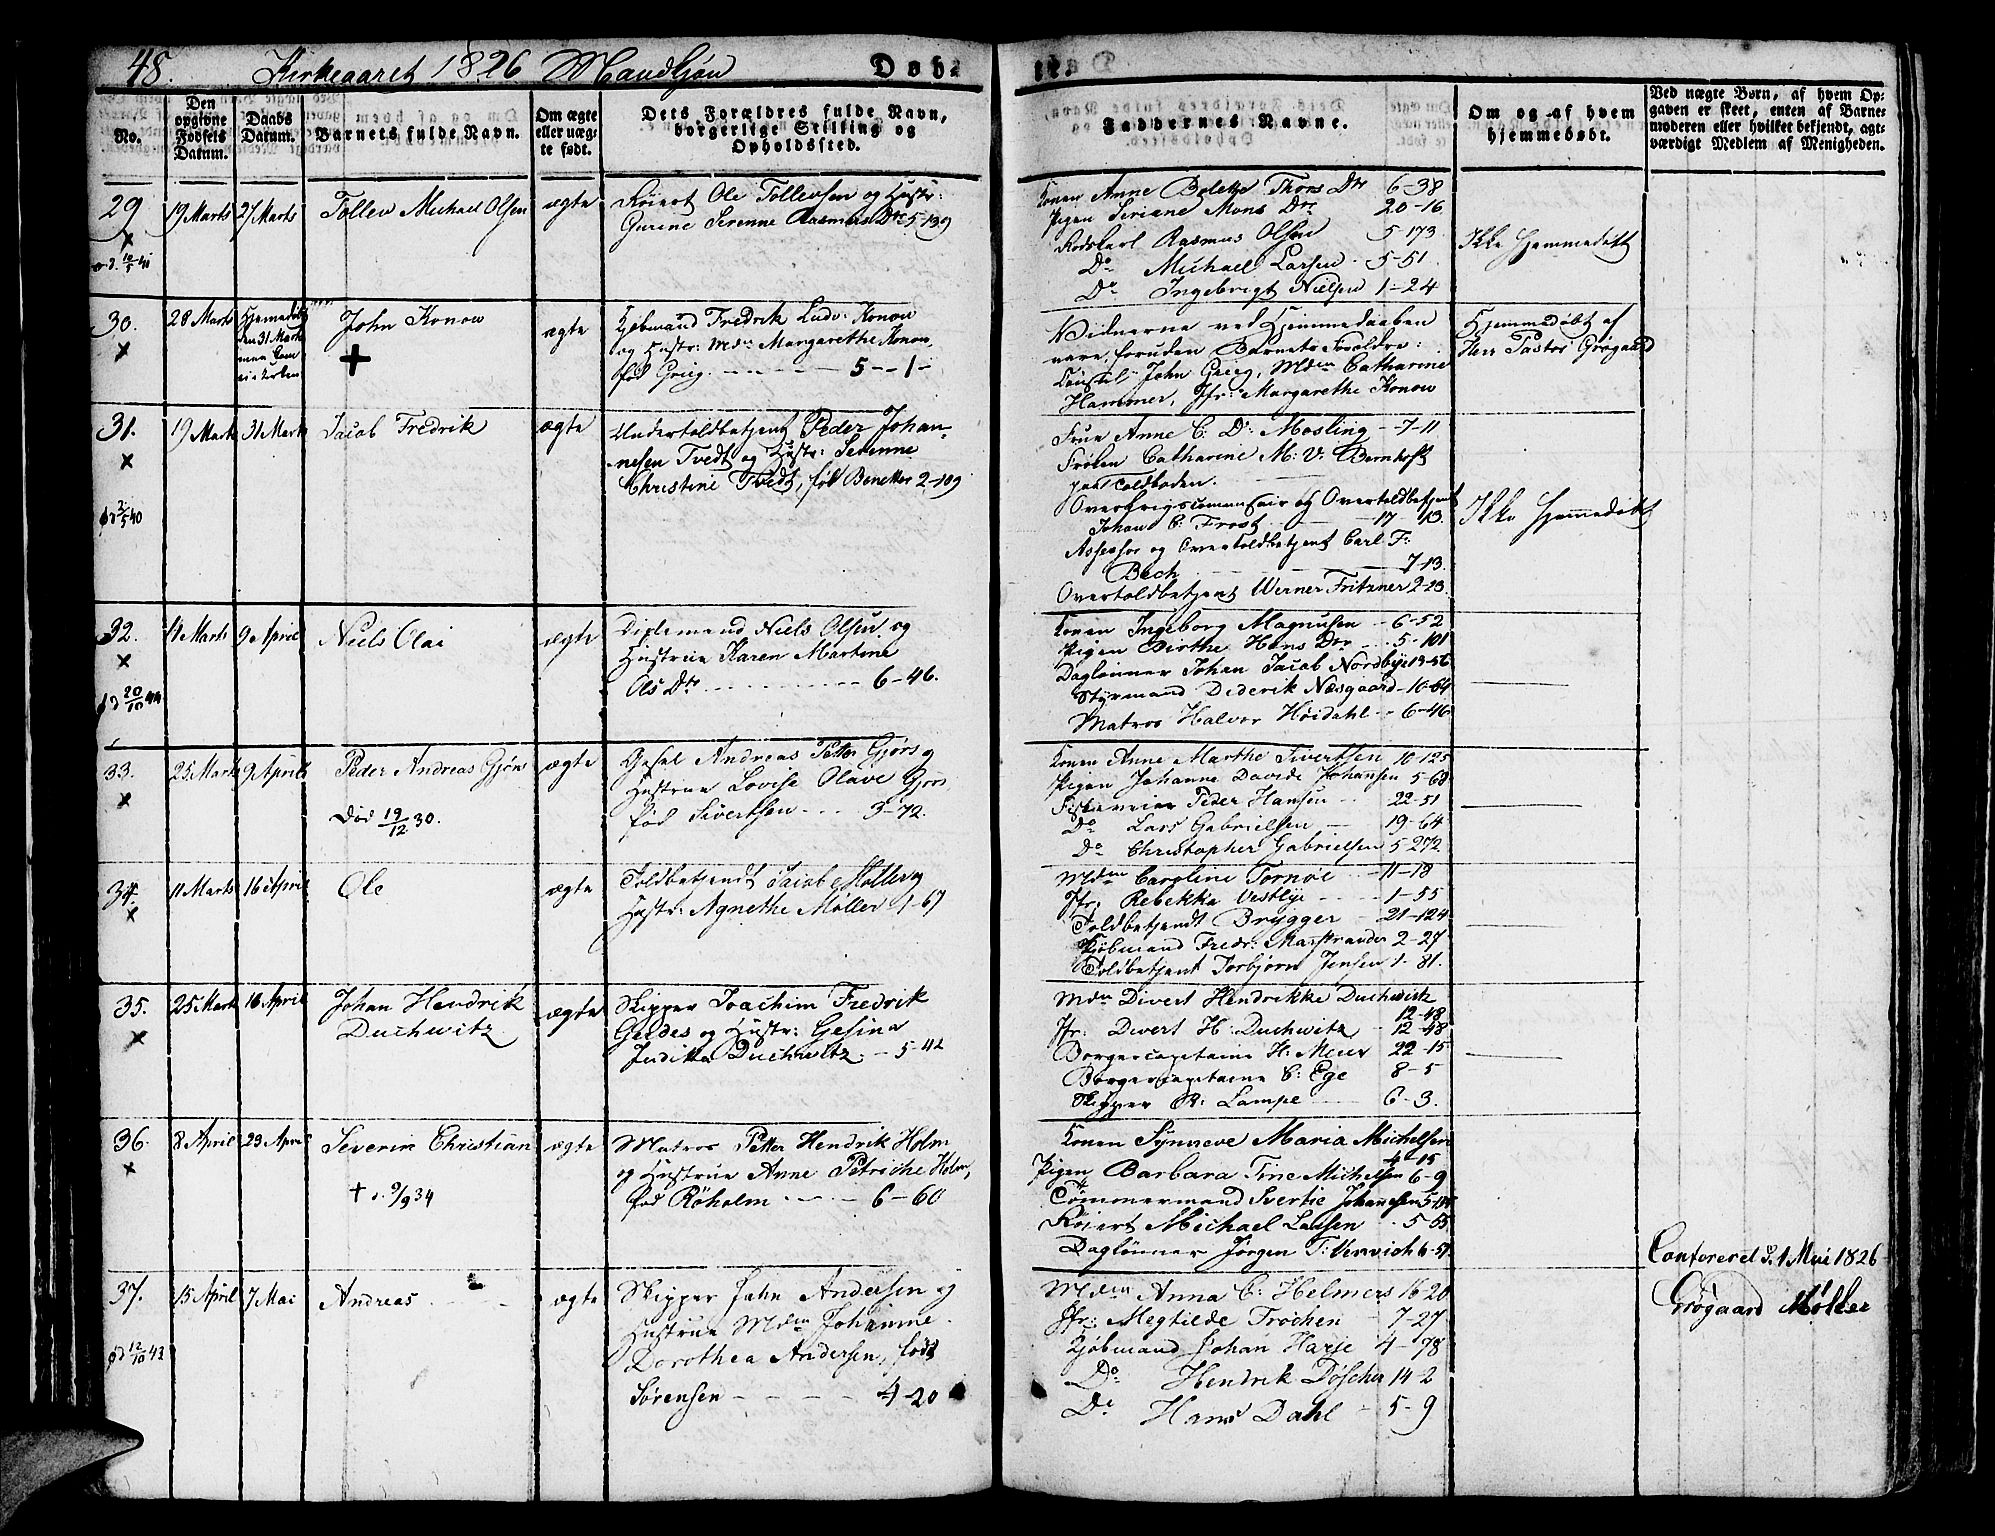 48. Kirkeaaret 1826 Mandkjøn Døbte.
No.
Den opgivne Fødsels Datum.
Daabs Datum.
Barnets fulde Navn.
Om ægte eller uægte født.
Dets Forældres fulde Navn, borgerlige Stilling og Opholdssted.
Faddernes Navne.
Om og af hvem hjemmedøbt.
Ved uægte Børn, af hvem Opgaven er skeet, enten af Barnemoderen eller hvilket bekjendt, agtværdigt Medlem af Menigheden.
29 19 Marts 27 Marts Tollev Michael Olsen ægte
Roiert Ole Tollevsen og Hustr:
Gurine Serenne Rasmus Dtr 5-139
Konen Anne Bolette Thors Dtr 6-38
Pigen Seriane Mons Dtr 20-16
Rodskarl Rasmus Olsen 5-173
Do Michael Larsen 5-51
Do Ingebrigt Nielsen 1-24
Ikke Hjemmedøbt
30. 28 Marts Hjemmedøbt den 31 Marts John Konow ægte
Kjøbmand Fredrik Ludv: Konow
og Hustr: Mdm Margarethe Konow,
fød Grieg. 5--1-
Vidnerne ved Hjemmedaaben
vare, foruden Barnets Forældre:
Consul John Grieg, Mdm Catharine
Hammer, Jfr: Margarethe Konow
Hjemmedøbt af
Herr Pastor Grøgaard
31. 19 Marts 31 Marts Jacob Fredrik ægte
d 2/5 40
Undertoldbetjent Peder Johan-
nesen Tvedt og Hustr: Serenne
Christine Tvedt, fød Benetter 2-109
Frue Anne C. D. Mosling 7-11
Frøken Catharine M: V: Bernhoft
paa Toldboden.
Overkrigscommissair og Overtoldbetjent
Johan C: Frost 17-13.
Assessor og Overtoldbetjent Carl F:
Bech 7-13.
Overtoldbetjent Werner Fritzner 2-23.
Ikke Hjemmedøbt
32. 11 Marts 9 April Niels Olai ægte
d 20/10 44
Niels Olsen og
Hustrue Karen Martine
Ols Dtr 6-46.
Konen Ingeborg Magnusen 6-52
Pigen Birthe Hans Dtr 5-101
Daglønner Johan Jacob Nordbye 19-56
Styrmand Diderik Næsgaard 10-64
Matros Halvor Høidahl 6-46
33. 25 Marts 9 April Peder Andreas Gjørs ægte
Død 19/12 30.
Gesel Andreas Petter Gjørs og
Hustrue Lovise Olave Gjørs
fød Sivertsen 3-72.
Konen Anne Marthe Sivertsen 10-125
Pigen Johanne Davide Johansen 5-68
Peder Hansen 22-51
Do Lars Gabrielsen 19-64
Do Christopher Gabrielsen 5-272
34. 11 Marts 16 April Ole ægte
Toldbetjendt Jacob Møller og
Hustr: Agnethe Møller 1-67
Mdm Caroline Tornøe 11-18
Jfr: Rebekka Vestlye 1-55
Toldbetjendt Brygger 21-124
Kjøbmand Fredr: Marstrander 2-27
Toldbetjent Torbjørn Jensen 1-81.
35. 25 Marts 16 April Johan Hendrik
Duchwitz ægte
Skipper Joachim Fredrik
Geldes og Hustr: Gesina
Juditta Duchwitz 5-42
Mdm Divert Hendrikke Duchwitz
12-48
Jfr: Divert H: Duchwitz 12-48
Borgercapitaine H: Meier 22-15
Borgercapitaine C: Ege 8-5
Skipper R: Lampe 6-3.
36. 8 April 23 April Severin Christian ægte
Matros Petter Hendrik Holm
og Hustrue Anne Petriche Holm,
fød Røholm 6-60
Konen Synneve Maria Michelsen
4-15
Pigen Barbara Tine Michelsen 6-9
Tømmermand Svertie Johannesen
Roiert Michael Larsen 5-55
Daglønner Jørgen T: Vervich 6-57
37. 15 April 7 Mai Andreas ægte
d 12/10 42
Skipper John Andersen og
Hustrue Mdm Johanne
Dorothea Andersen, født
Sørensen 4-20
Mdm Anna C: Helmers 16-20
Jfr: Megtilde Trochen 7-27
Kjøbmand Johan Harje 4-78
Do Hendrik Döscher 14-2
Do Hans Dahl 5-9
Confereret d. 1 Mai 1826
Grøgaard Møller